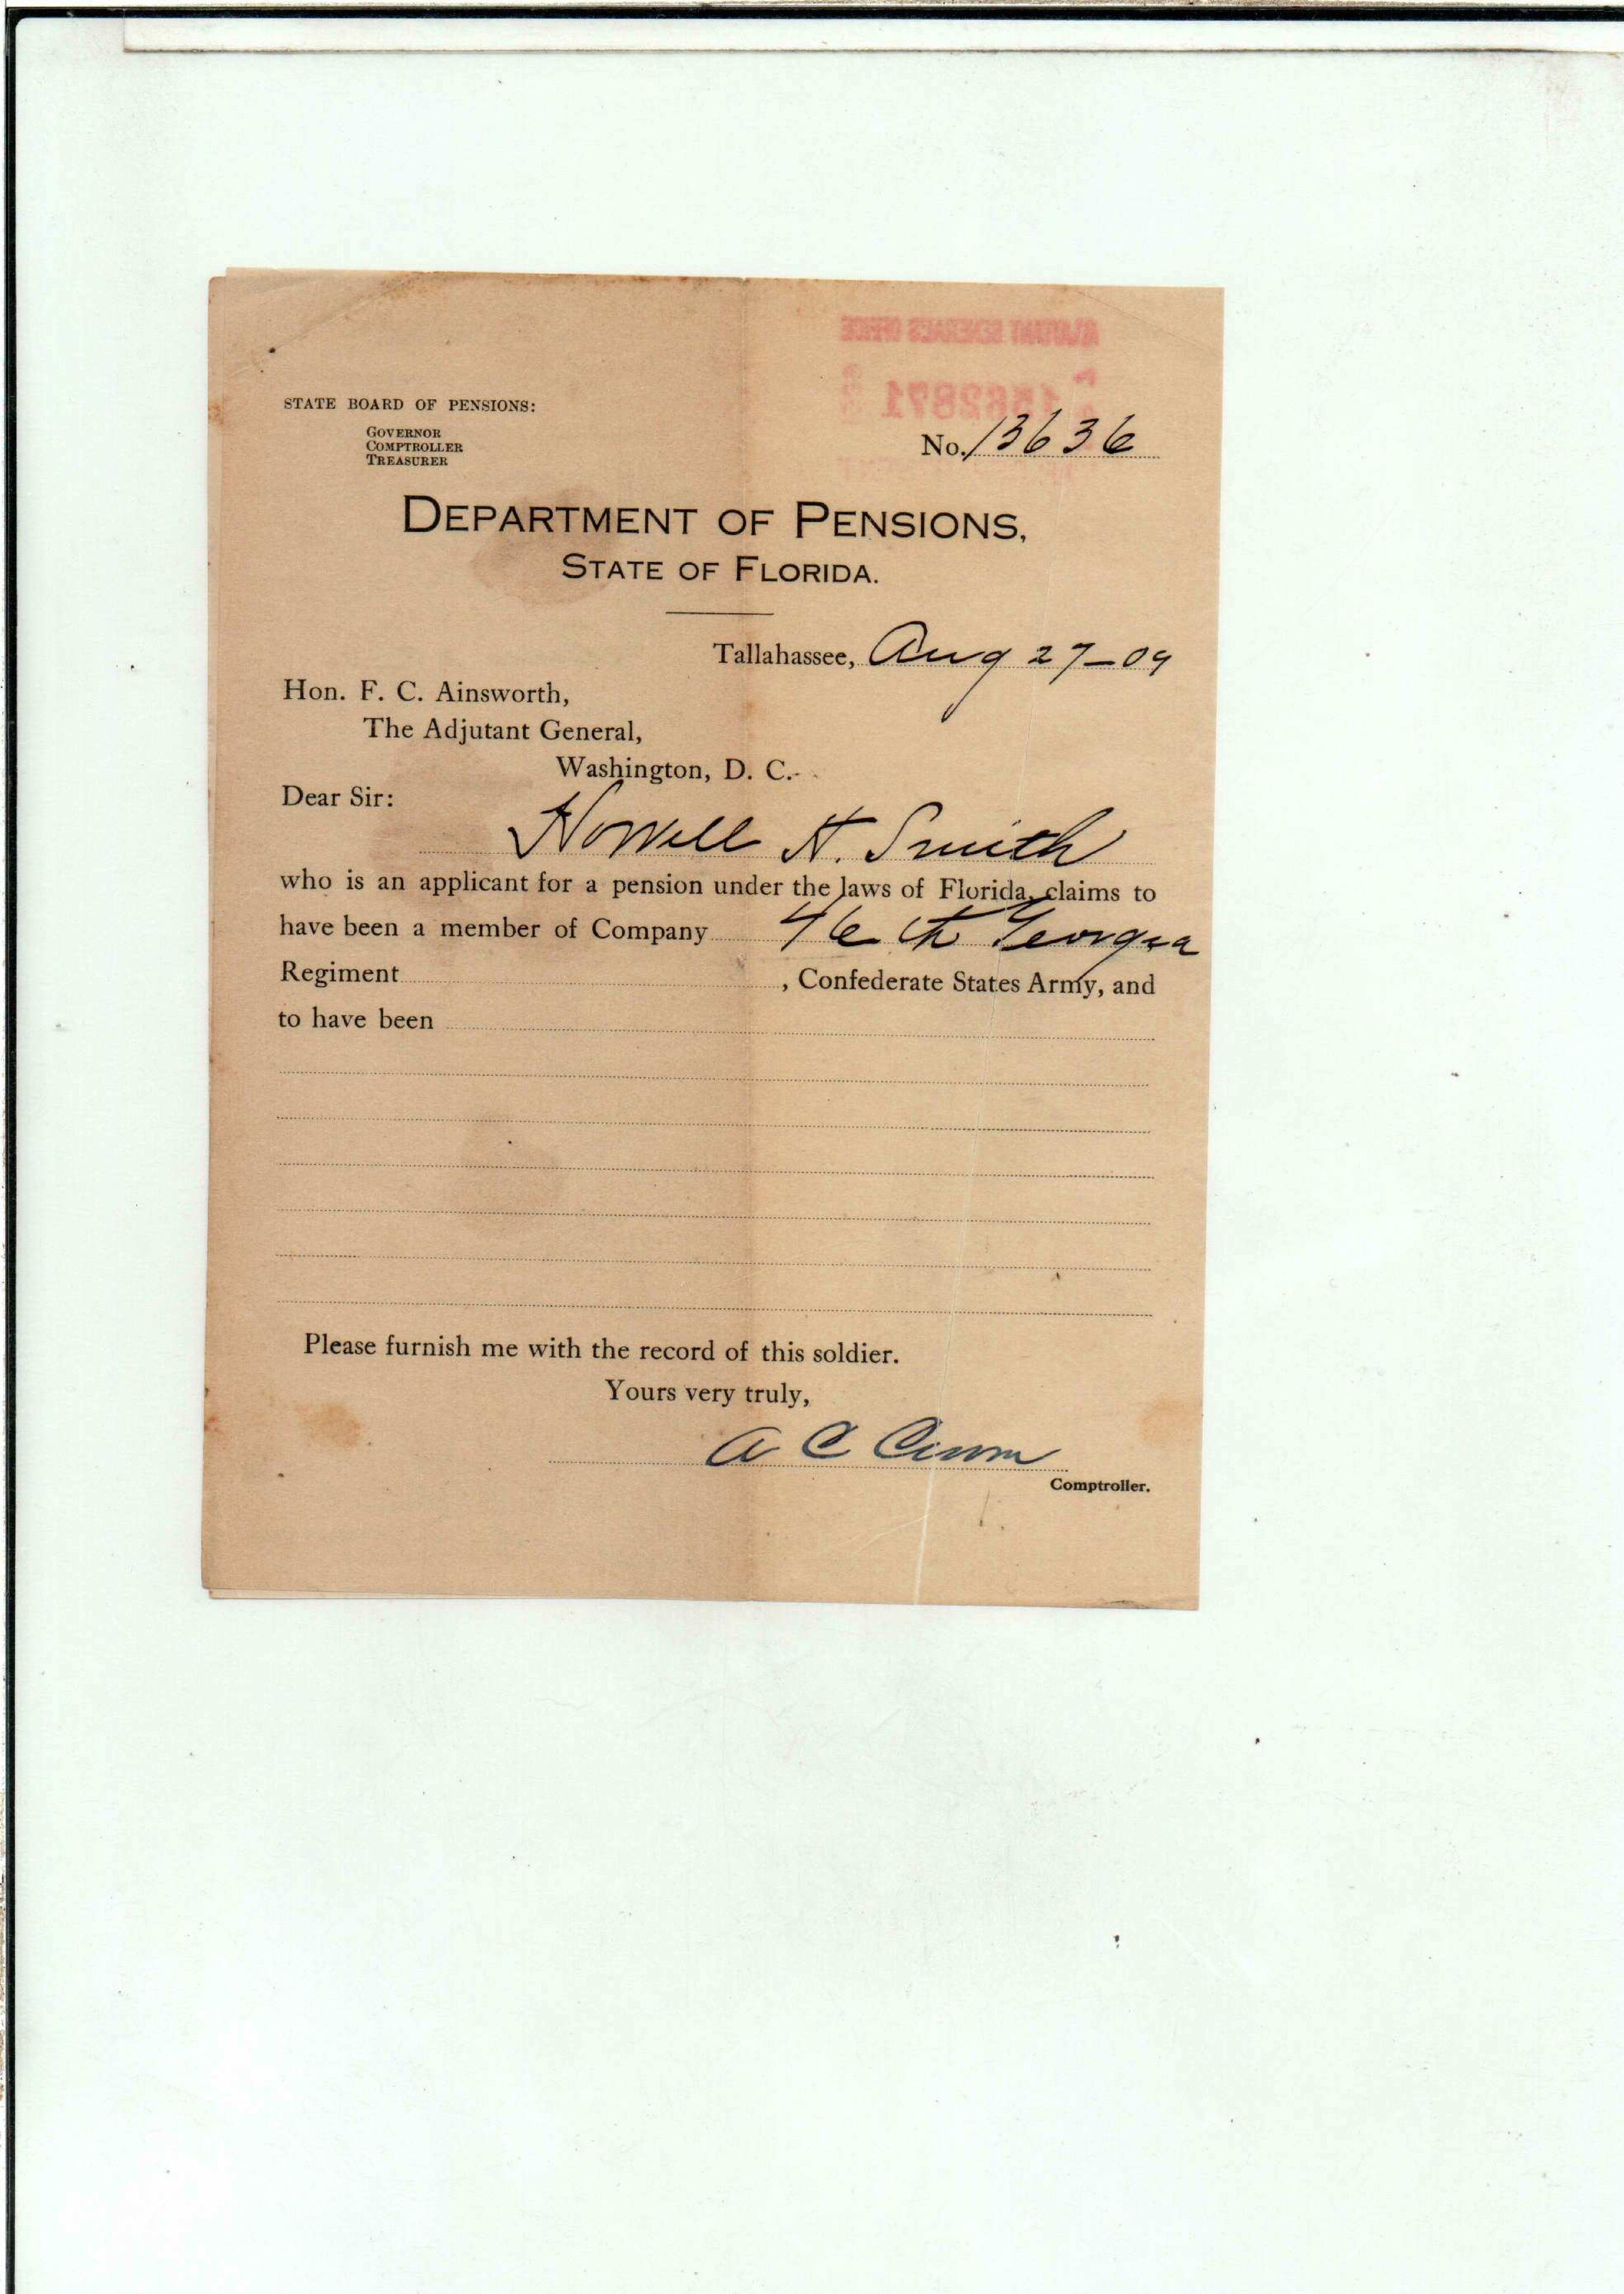 ADJUTANT GENERAL'S OFFICE
1562871
STATE BOARD OF PENSIONS:
GOVERNOR
COMPTROLLER
TREASURER
No. 13636
DEPARTMENT OF PENSIONS,
STATE OF FLORIDA.
Tallahassee, Aug 27-09
Hon. F. C. Ainsworth,
The Adjutant General,
Washington, D. C.
Dear Sir:
Howell H. Smith
who is an applicant for a pension under the laws of Florida, claims to
have been a member of Company 46th Georgia
Regiment , Confederate States Army, and
to have been
Please furnish me with the record of this soldier.
Yours very truly,
A C Croom
Comptroller.